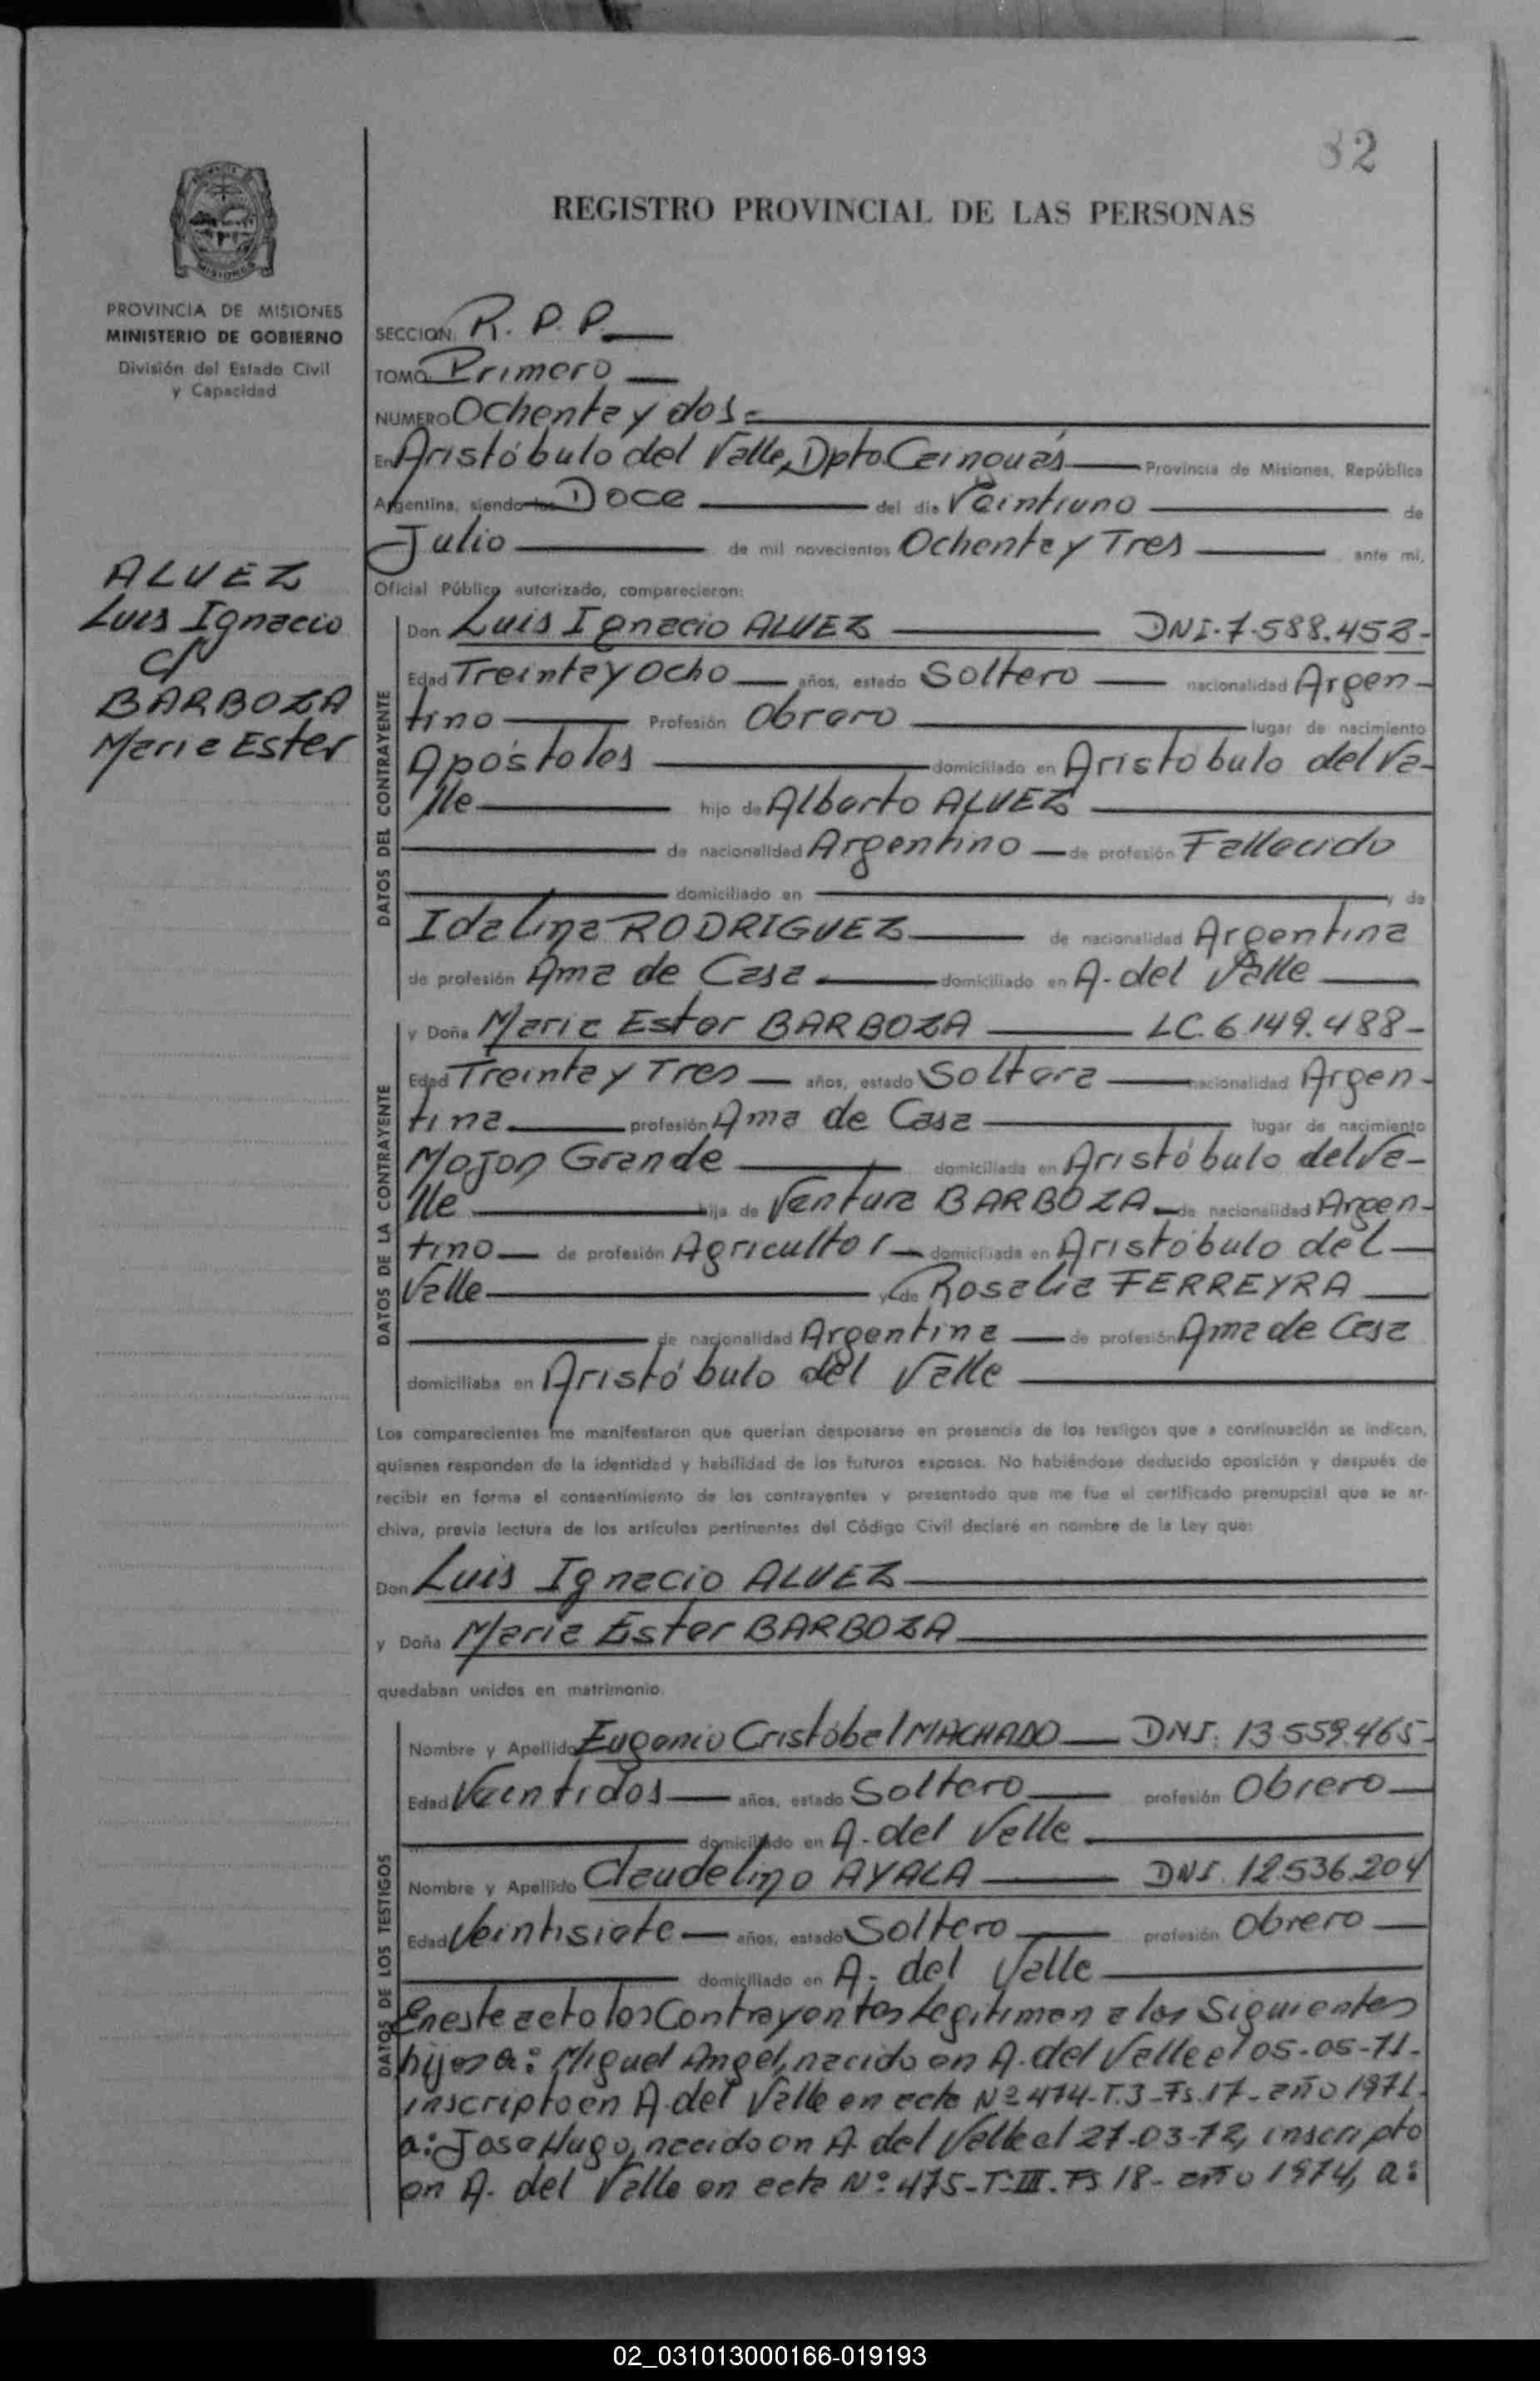 82
REGISTRO PROVINCIAL DE LAS PERSONAS
MISIONES
PROVINCIA DE MISIONES
MINISTERIO DE GOBIERNO
División del Estado Civil
y Capacidad
ALVEZ
Luis Ignacio
c/
BARBOZA
Maria Ester
SECCION: R. P. P.
TOMO: Primero
NUMERO Ochenta y dos
En Aristóbulo del Valle, Dpto Cainguás Provincia de Misiones, República
Argentina, siendo las Doce del día Veintiuno de
Julio de mil novecientos Ochenta y Tres , ante mí,
Oficial Público autorizado, comparecieron:
DATOS DEL CONTRAYENTE
Don Luis Ignacio ALVEZ DNI-7.588.458-
Edad Treinta y Ocho años, estado Soltero nacionalidad Argen-
tino Profesión Obrero lugar de nacimiento
Apóstoles domiciliado en Aristobulo del Va-
lle hijo de Alberto ALVEZ
de nacionalidad Argentino de profesión Fallecido
domiciliado en y de
Idalina RODRIGUEZ de nacionalidad Argentina
de profesión Ama de Casa domiciliado en A. del Valle
DATOS DE LA CONTRAYENTE
y Doña Maria Ester BARBOZA LC. 6.149.488-
Edad Treinta y Tres años, estado Soltera nacionalidad Argen-
tina profesión Ama de Casa lugar de nacimiento
Mojon Grande domiciliada en Aristóbulo del Va-
lle hija de Ventura BARBOZA de nacionalidad Argen-
tino de profesión Agricultor domiciliada en Aristóbulo del
Valle y de Rosalia FERREYRA
de nacionalidad Argentina de profesión Ama de Casa
domiciliaba en Aristóbulo del Valle
Los comparecientes me manifestaron que querían desposarse en presencia de los testigos que a continuación se indican,
quienes responden de la identidad y habilidad de los futuros esposos. No habiéndose deducido oposición y después de
recibir en forma el consentimiento de los contrayentes y presentado que me fue el certificado prenupcial que se ar-
chiva, previa lectura de los artículos pertinentes del Código Civil declaré en nombre de la Ley que:
Don Luis Ignacio ALVEZ
y Doña Maria Ester BARBOZA
quedaban unidos en matrimonio.
DATOS DE LOS TESTIGOS
Nombre y Apellido Eugenio Cristóbal MACHADO DNI. 13.559.465-
Edad Veintidos años, estado Soltero profesión Obrero
domiciliado en A. del Valle
Nombre y Apellido Claudelino AYALA DNI. 12.536.204
Edad Veintisiete años, estado Soltero profesión Obrero
domiciliado en A. del Valle
En este acto los Contrayentes Legitiman a los Siguientes
hijos a: Miguel Angel, nacido en A. del Valle el 05-05-71-
inscripto en A. del Valle en acta Nº 474-T.3-Fs.17-año 1971.
a: Jose Hugo, nacido en A. del Valle el 27-03-72, inscripto
en A. del Valle en acta Nº: 475-T:III. Fs 18- año 1974, a:
02_031013000166-019193